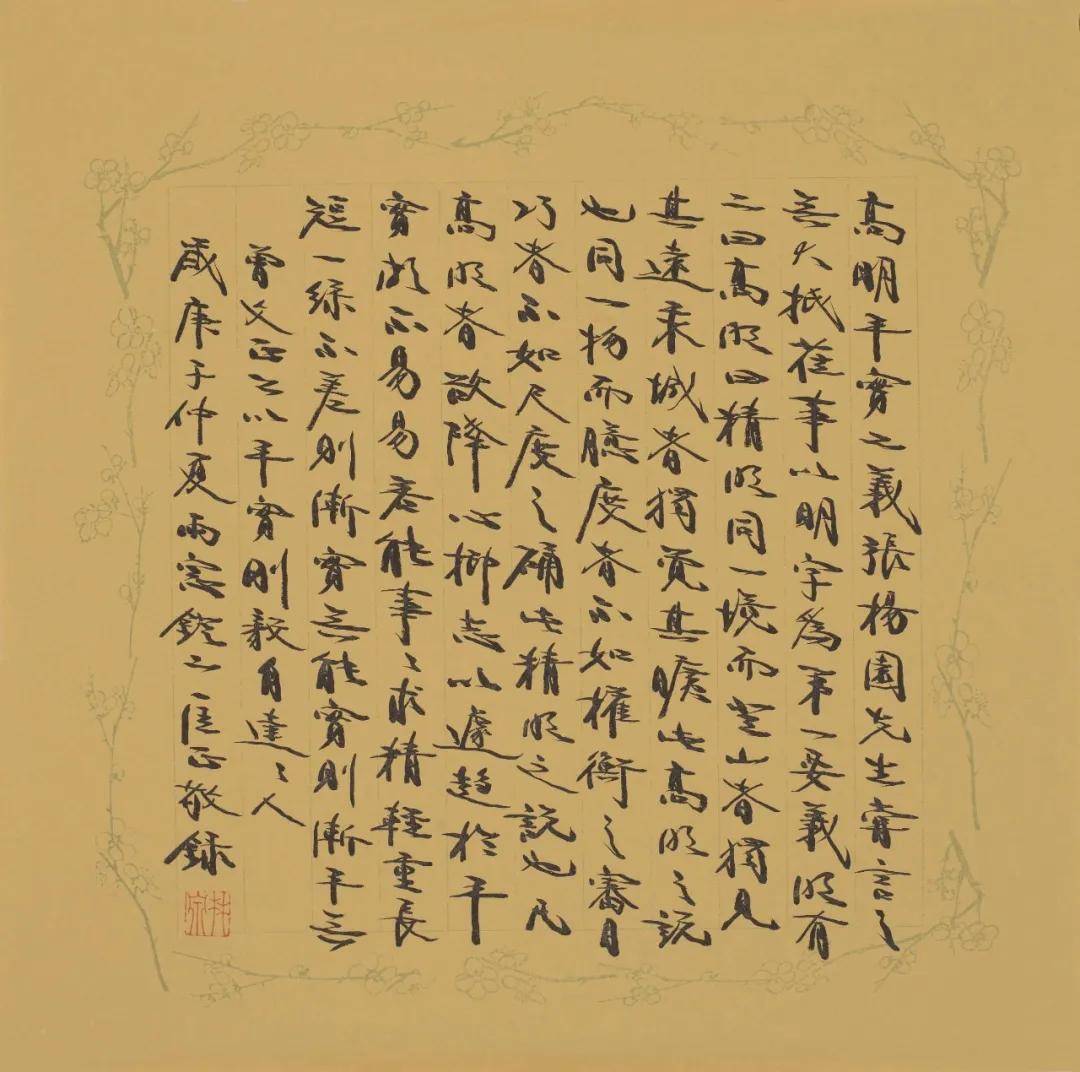 高明平實之義張楊園先生嘗言之
矣大抵莅事以明字為第一要義明有
二曰高明曰精明同一境而登山者獨見
其遠乘城者獨覺其曠此高明之說
也同一物而臆度者不如權衡之審目
巧者不如尺度之確此精明之說也凡
高明者欲降心抑志以遽趨於平
實頗不易易若能事〻求精輕重長
短一絲不差則漸實矣能實則漸平矣
曾文正公以平實剛毅自達〻人
歲庚子仲夏雨窗鐙下匡正敬錄